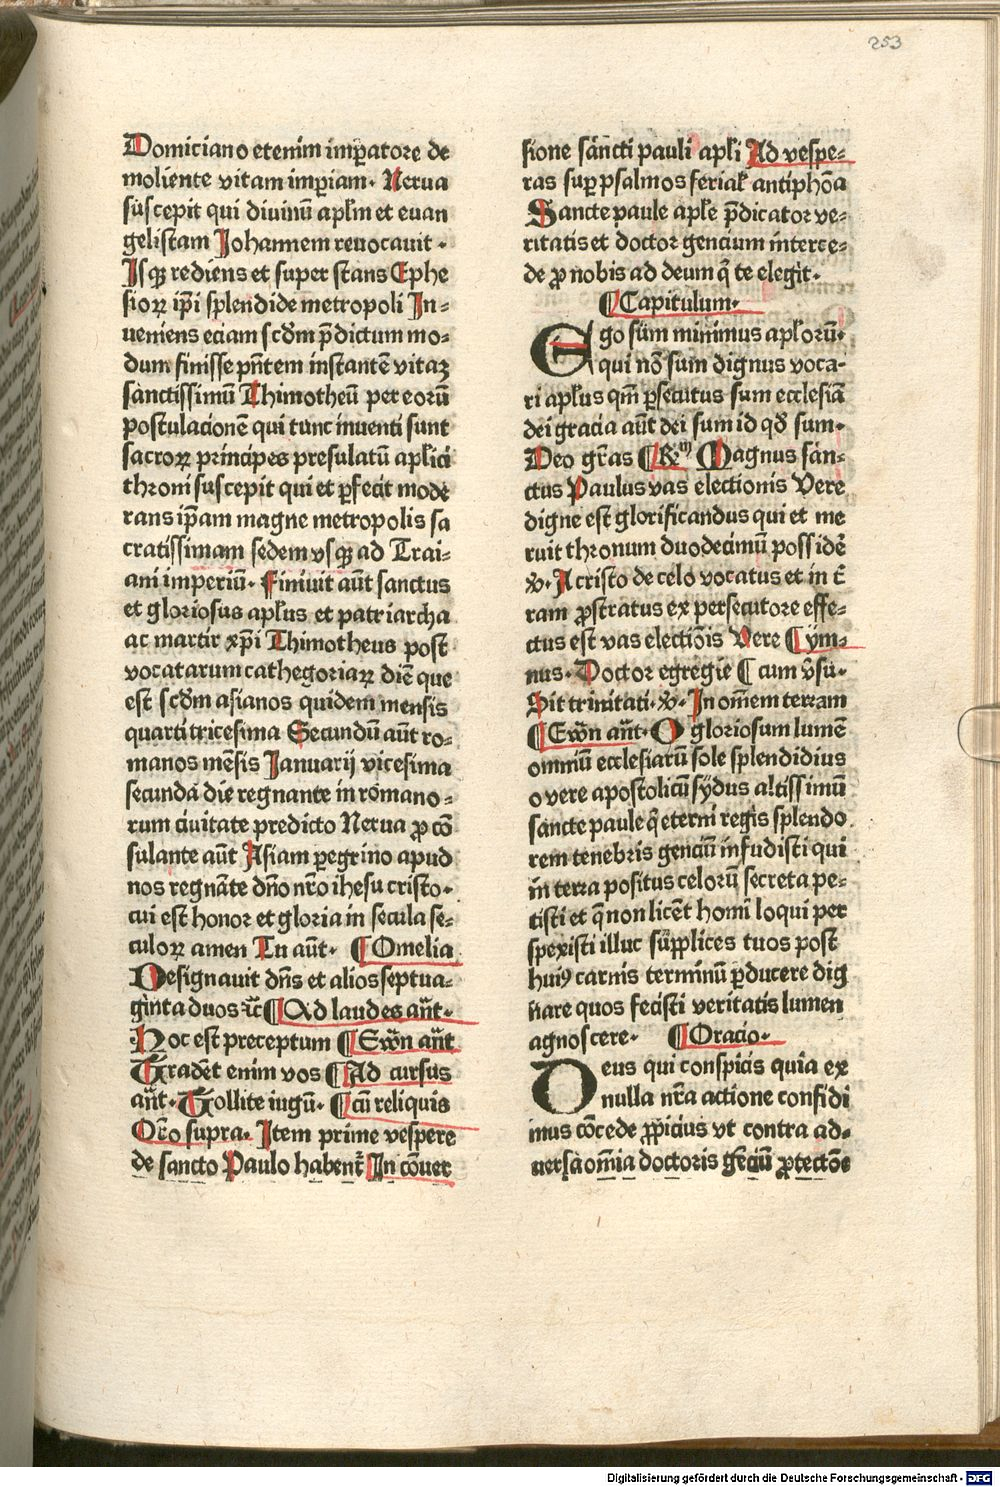 253
Domiciano etenim imꝑatore de
moliente vitam imꝑiam. Nerua
suscepit qui diuinū aplm et euan
gelistam Johannem reuocauit.
Isqꝫ rediens et super stans Ephe
sioꝝ ip̄i splendide metropoli In-
ueniens eciam scd̄m p̄dictum mo-
dum finisse pn̄tem instantē vitaꝫ
sanctissimū Thimotheū per eorū
postulacionē qui tunc inuenti sunt
sacroꝝ principes presulatū aplici
throni suscepit qui et ꝑfecit mode
rans ip̄am magne metropolis sa
cratissimam sedem vsqꝫ ad Trai-
ani imperiū. Finiuit aūt sanctus
et gloriosus aplus et patriarcha
ac martir xp̄i Thimotheus post
vocatarum cathegoriaꝝ diē que
est scd̄m asianos quidem mensis
quarti tricesima Secundū aūt ro-
manos mēsis Januarij vicesima
secunda die regnante in romano-
rum ciuitate predicto Nerua ꝓ cō
sulante aūt Asiam ꝑegrino apud
nos regnāte dn̄o nr̄o ihesu cristo.
cui est honor et gloria in secula se-
culoꝝ amen Tu aūt. ¶ Omelia
Designauit dn̄s et alios septua-
ginta duos ꝛc̄ ¶ Ad laudes an̄t.
Hoc est preceptum ¶ Ewn̄ an̄t
Tradēt enim vos ¶ Ad cursus
an̄t. Tollite iugū. ¶ cū reliquis
Or̄o supra. Item prime vespere
de sancto Paulo habent᷑ In cōuer
sione sancti pauli apli Ad vespe-
ras suꝑ psalmos feriał antiphōa
Sancte paule aple p̄dicator ve-
ritatis et doctor gencium interce-
de ꝓ nobis ad deum q̄ te elegit.
¶ Capitulum.
Ego sum minimus aplorū.
qui nō sum dignus voca-
ri aplus qm̄ ꝑsecutus sum ecclesiā
dei gracia aūt dei sum id qd̄ sum.
Deo gr̄as ¶ Rm̄ Magnus san-
ctus Paulus vas electionis Vere
digne est glorificandus qui et me
ruit thronum duodecimū possidē
℣. A cristo de celo vocatus et in t̄
ram ꝓstratus ex persecutore effe-
ctus est vas electiōis Vere ¶ ym-
nus. Doctor egregie ¶ cum v̄su.
Sit trinitati. ℣. In om̄em terram
¶ Ewn̄ an̄t. O gloriosum lumē
ommiū ecclesiarū sole splendidius
o vere apostolicū sydus altissimū
sancte paule q̄ eterni regis splendo
rem tenebris genciū infudisti qui
in terra positus celorū secreta pe-
tisti et q̄ non licēt homī loqui per
spexisti illuc supplices tuos post
huiꝰ carnis terminū ꝑducere dig
nare quos fecisti veritatis lumen
agnoscere. ¶ Oracio.
Deus qui conspicis quia ex
nulla nr̄a actione confidi
mus cōcede ꝓpicius vt contra ad-
uersa om̄ia doctoris gēciū ꝓtectōe
Digitalisierung gefördert durch die Deutsche Forschungsgemeinschaft - DFG